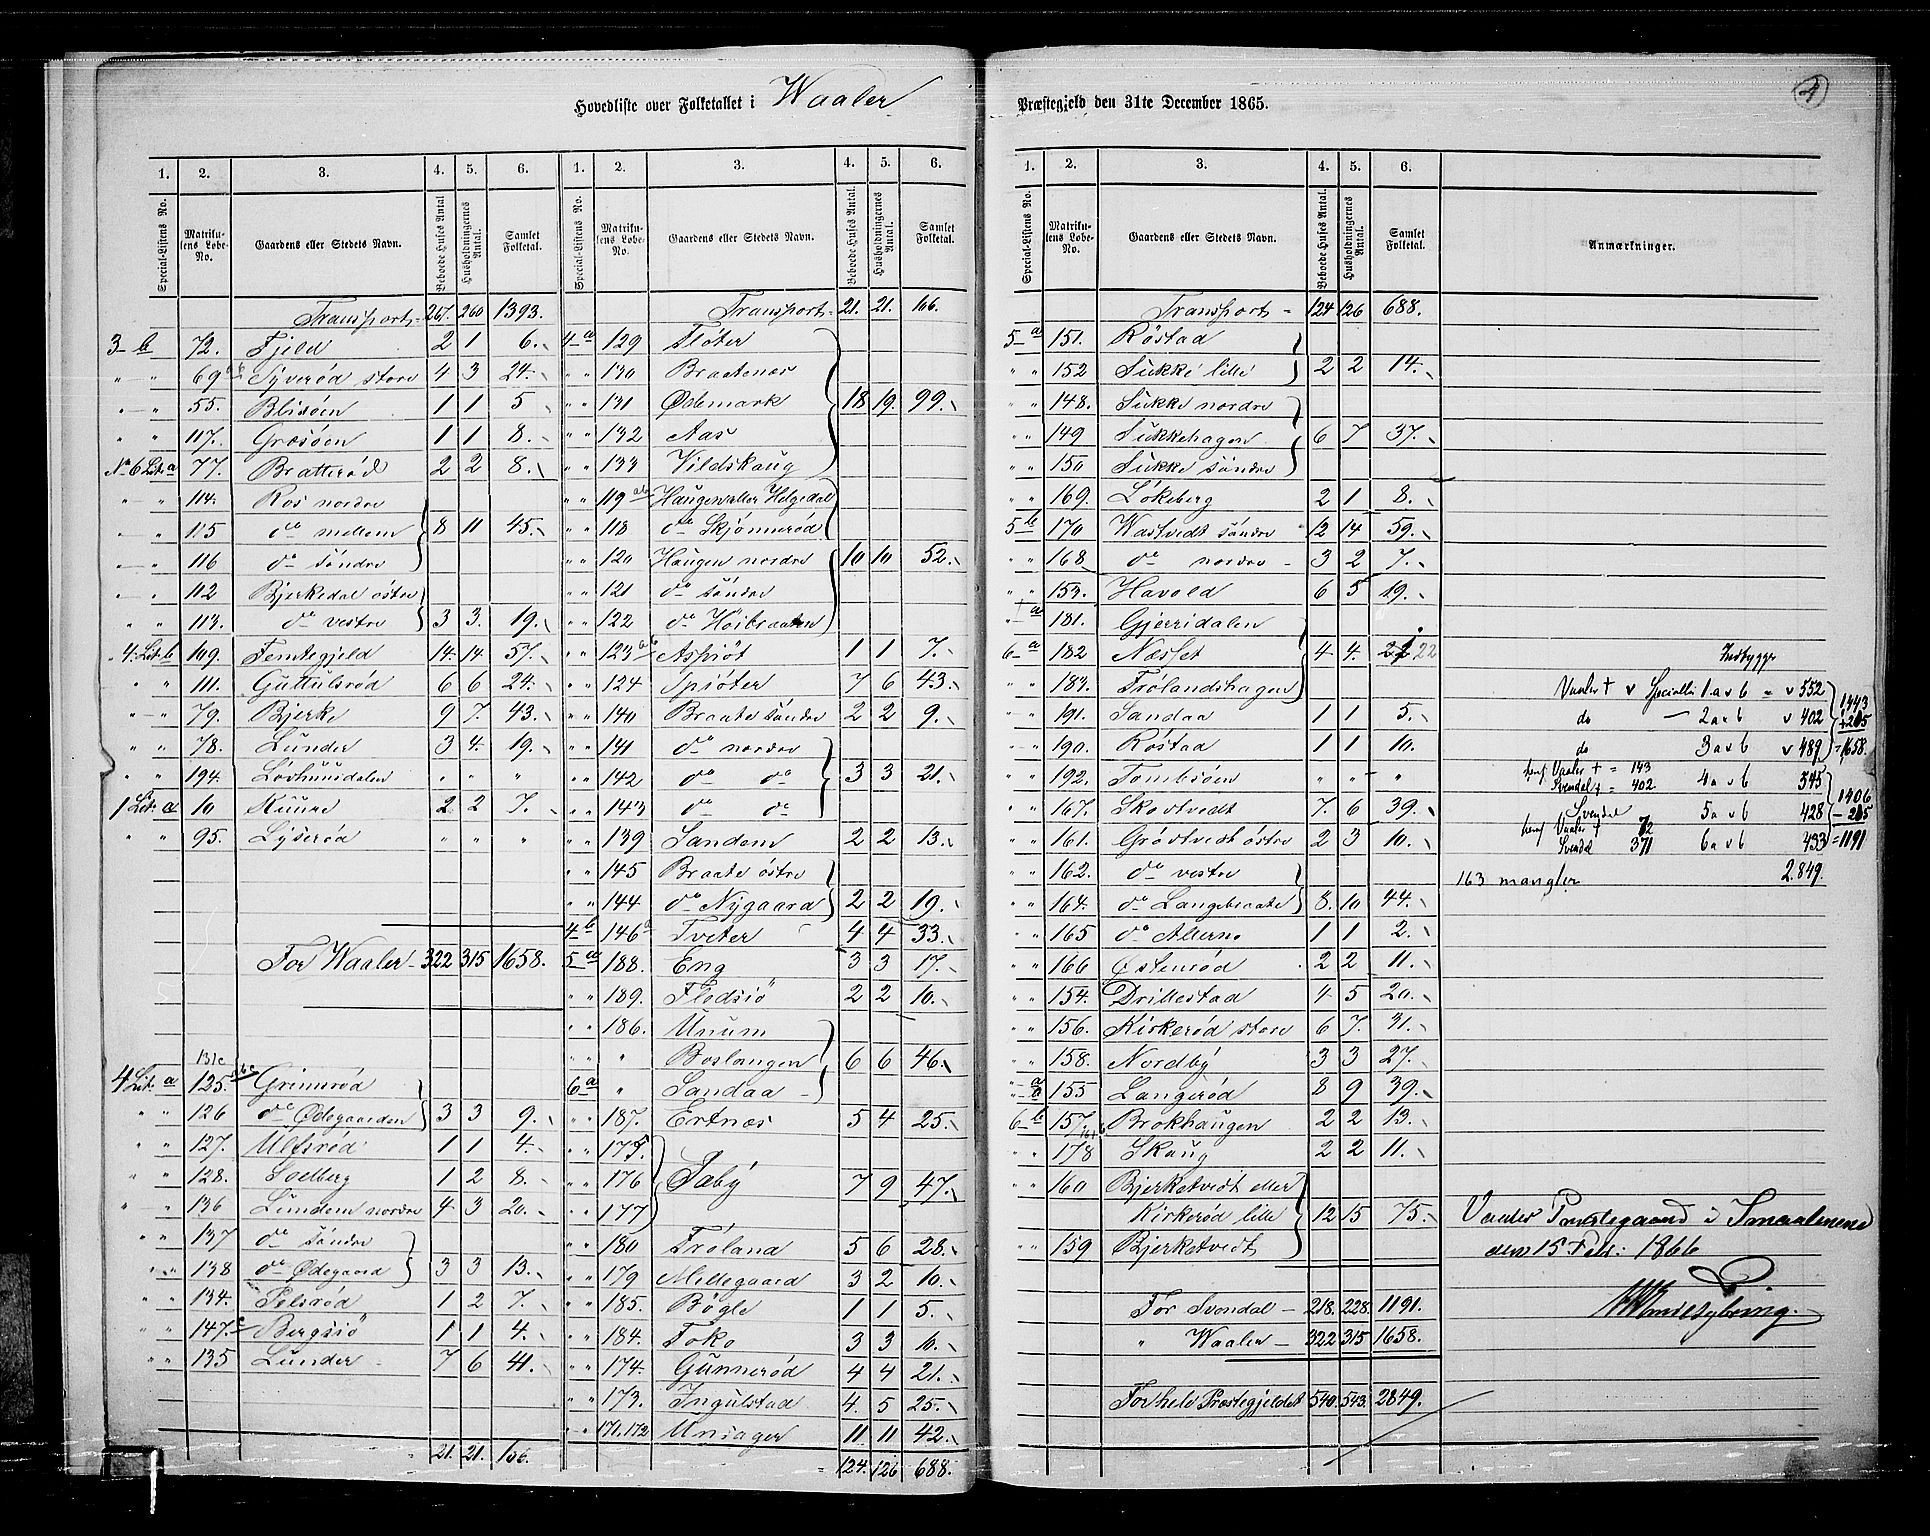 Hovedliste over Folketallet i Waaler Præstegjeld den 31te December 1865.
1. 2. 3. 4. 5. 6. 1. 2. 3. 4. 5. 6.
Special-Listens No. Matrikulens Løbe-No. Gaardens eller Stedets Navn. Beboede Huses Antal. Husholdningernes Antal. Samlet Folketal. Special-Listens No. Matrikulens Løbe-No. Gaardens eller Stedets Navn. Beboede Huses Antal. Husholdningernes Antal. Samlet Folketal.
Transport 267. 260 1393.
3 b 72. Fjeld 2 1 6.
" " 69 ab Syverød store 4 3 24.
" " 55. Blisöen 1 1 5
" " 117. Græsöen 1 1 8.
No 6 Lit a 77. Bratterød 2 2 8.
" " 114. Ros nordre
" " 115 do mellem 8 11 45.
" " 116 do söndre
" " 112 Bjerkedal östre
" " 113. do vestre 3 3. 19.
" 4 Lit b 109. Femtegjeld 14. 14 57.
" " 111. Guttulsrød 6 6 24.
" " 79. Bjerke 9 7. 43.
" " 78. Lunder 3 4. 19.
" " 194. Lövhuusdalen " " "
1 Lit. a 10 Kuure 2 2 7.
" " 95. Lyserød " " "
For Waaler 322 315 1658.
131c
4 Lit. a 125. abc Grimsrød
" " 126 do Ødegaarden 3 3 9.
" " 127. Ulfsrød 1 1 4.
" " 128. Soelberg 1 2 8.
" " 136 Lundem nordre 4 3 20.
" " 137 do söndre
" " 138 do Ødegaard 3 3 13.
" " 134. Pelsrød 1 2 7.
" " 147. c Bergsiö 1 1 4.
" " 135 Lunder 7 6 41.
21. 21. 106.
Transport 21. 21. 106.
4 a 129 Flöter
" " 130 Braatenæs
" " 131 Ødemark 18 19. 99.
" " 132 Aas
" " 133 Vildskaug
" " 119 ab Haugen eller Helgedal
" " 118 do Skjönnerød
" " 120 Haugen nordre 10 10 52.
" " 121 do söndre
" " 122 do Höibraaten
" " 123 ab Aspiöt 1 1 7.
" " 124 Spiöter 7 6 43.
" " 140 Braate söndre 2 2 9.
" " 141 do nordre
" " 142 do do 3 3 21.
" " 143 do do
" " 139 Sandem 2 2 13.
" " 145 Braate östre
" " 144 do Nygaard 2 2 19.
4 b 146 a Tveter 4 4 33.
5 a 188. Eng 3 3 17.
" " 189. Flodsiö 2 2 10.
" " 186. Unum
" " " Boslangen 6 6 46.
6 a " Sandaa
" " 187. Ertnæs 5 4 25.
" " 175.
" " 176 Saby 7 9 47.
" " 177
" " 180 Fröland 5 6 28.
" " 179 Millegaard 3 2 10.
" " 185. Bögle 1 1 5.
" " 184. Foko 3 3 10.
" " 174. Gunnerød 4 4 21.
" " 173. Ingulstad 4. 5 25.
" " 171. 172 Unsager 11 11 42.
124. 126 688.
2
1. 2. 3. 4. 5. 6.
Special-Listens No. Matrikulens Løbe-No. Gaardens eller Stedets Navn. Beboede Huses Antal. Husholdningernes Antal. Samlet Folketal. Anmærkninger.
Transport 124 126 688.
5 a 151. Röstad
" " 152 Sukke lille 2 2 14.
" " 148. Sukke nordre
" " 149 Sukkehagen 6 7 37.
" " 150 Sukke söndre
" " 169. Lökeberg 2 1 8.
5 b 170 Wastvedt söndre 12 14 59.
" " 168 do nordre 3 2 7.
" " 153. Havold 6 5 19.
" a 181. Gjerridalen
6 a 182 Næsset 4 4. 22
" " 183. Frölandshagen
" " 191. Sandaa 1 1 5.
" " 190. Röstad 1 1 10.
" " 192. Tombsöen " " "
" " 167. Skovtvedt 7. 6 39.
" " 161. Gröstvedt östre 2 3 10.
" " 162. do vestre
" " 164. do Langebraate 8. 10 44.
" " 165 do Allerne 1 1 2.
" " 166 Østenrød 2 2 11.
" " 154. Drillestad 4 5 20.
" " 156. Kirkerød store 6 7. 31.
" " 158. Nordby 3 3 27.
" a 155 Langerød 8 9 39.
6 b 157. Brokhaugen 2 2 13.
" " 178 Skaug 2 2 11.
" " 160 Bjerketvedt eller
Kirkerød lille 12 15 75.
" " 159 Bjerketvedt
For Svendal 218. 228. 1191.
" Waaler 322 315 1658.
For hele Præstegjeldet 540. 543. 2849.
Indbygger
Vaaler + v Specialli 1 a v b = v 552
do — 2 a v b v 402
do 3 a v b v 489
1443
+ 215
= 1658.
heraf Vaaler + = 143
Svendal + = 402 4 a v b 545
Svendal 5 a v b 428
heraf Vaaler + 72
Svendal 371 6 a v b 433
1406
- 215
= 1191
2.849.
163 mangler
Vaaler Præstegaard i Smaalenene
den 15 Febr: 1866